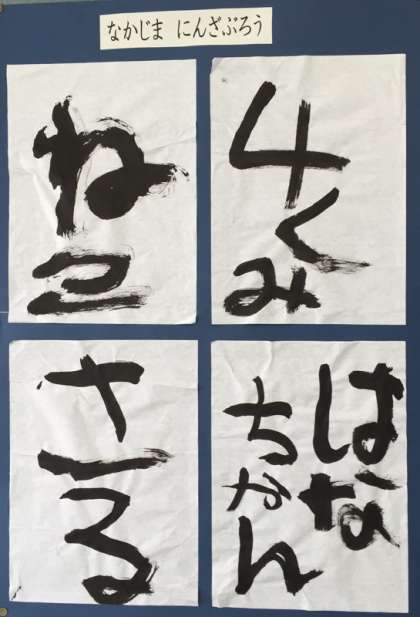 なかじま にんざぶろう
4くみ
ねこ
はな
ちゃん
さる